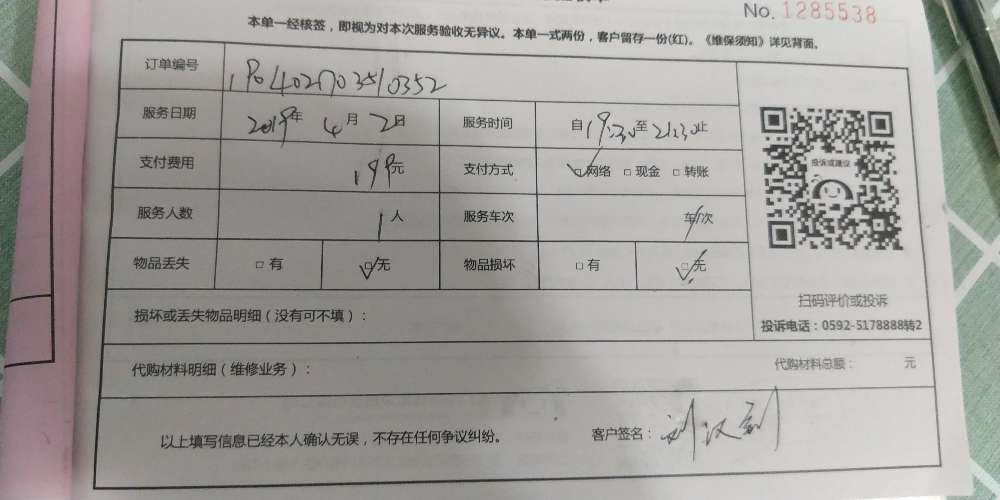 No. 1285538
本单一经核签，即视为对本次服务验收无异议。本单一式两份，客户留存一份(红)。《维保须知》详见背面。
订单编号 1904021703510352
服务日期 2019年 4月 2日 服务时间 自19:30至21:30止
支付费用 199元 支付方式 ☑网络 □现金 □转账
服务人数 1人 服务车次 车/次
投诉或建议
物品丢失 □有 ☑无 物品损坏 □有 ☑无
扫码评价或投诉
损坏或丢失物品明细（没有可不填）：
投诉电话：0592-5178888转2
代购材料明细（维修业务）： 代购材料总额： 元
以上填写信息已经本人确认无误，不存在任何争议纠纷。 客户签名：